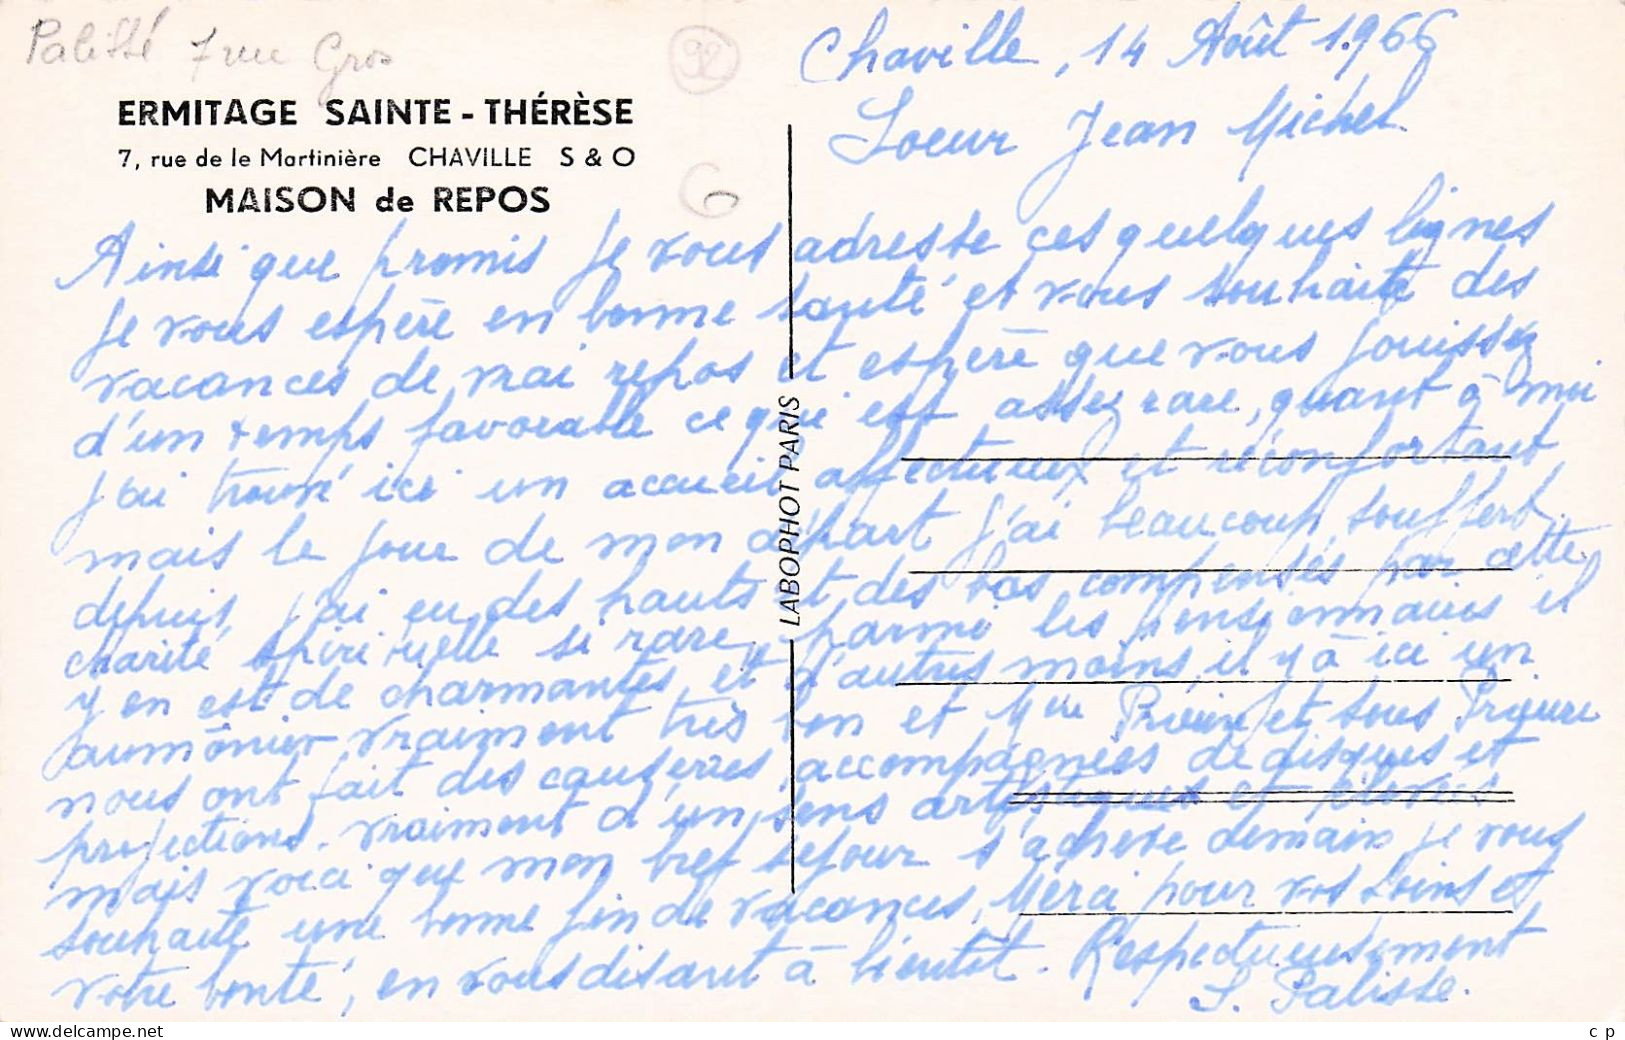 Palissé 7 rue Gros
92
ERMITAGE SAINTE-THÉRÈSE
7, rue de le Martinière CHAVILLE S & O
MAISON de REPOS
G
LABOPHOT PARIS
Chaville, 14 Août 1.966
Soeur Jean Michel
Ainsi que promis je vous adresse ces quelques lignes
je vous espère en bonne santé et vous souhaite des
vacances de vrai repos et espère que vous jouissez
d'un temps favorable ce qui est assez rare, quant à moi
j'ai trouvé ici un accueil affectueux et réconfortant,
mais le jour de mon départ j'ai beaucoup souffert.
depuis j'ai eu des hauts et des bas compensés par cette
charité spirituelle si rare, parmi les pensionnaires il
y en est de charmantes, et d'autres moins, il y à ici un
aumônier vraiment très bon et Mère Prieure et sous Prieure
nous ont fait des causeries, accompagnées de disques et
projections. vraiment d'un sens artistiques et
mais voici que mon bref séjour s'achève demain je vous
souhaite une bonne fin de vacances, Merci pour vos soins et
votre bonté, en vous disant à bientôt. Respectueusement
S. Palisse.
c p